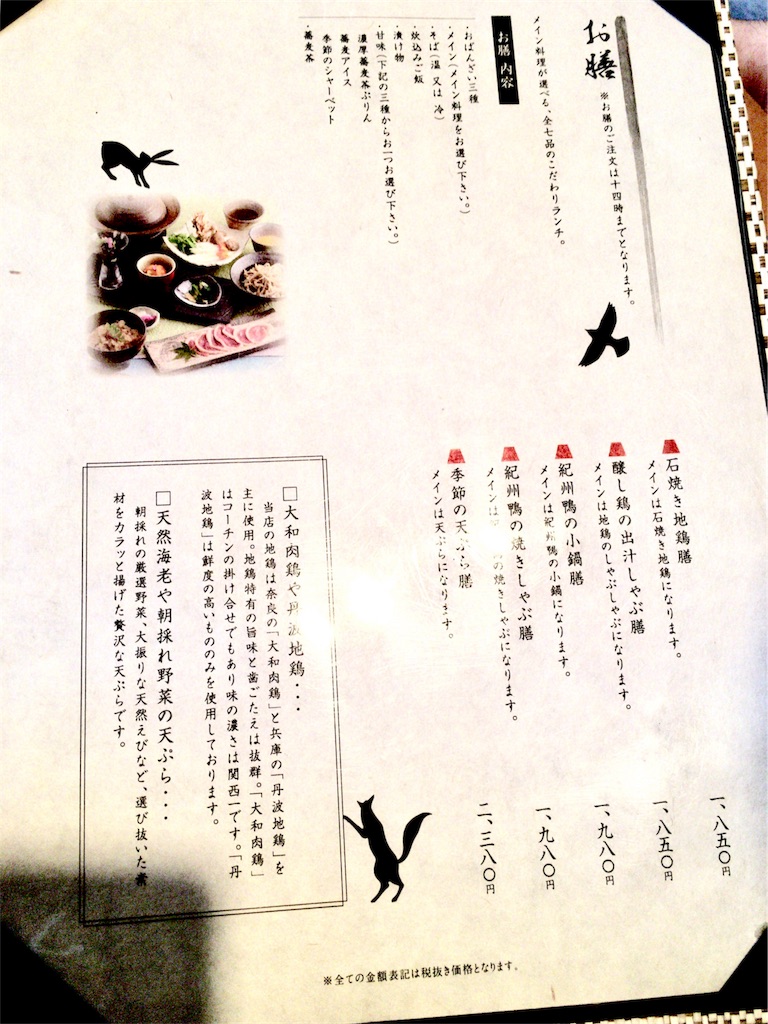 お膳
※お膳のご注文は十四時までとなります。
メイン料理が選べる、全七品のこだわりランチ。
お膳 内容
・おばんざい三種
・メイン(メイン料理をお選び下さい。)
・そば(温 又は 冷)
・炊込みご飯
・漬け物
・甘味(下記の三種からお一つお選び下さい。)
濃厚蕎麦茶ぷりん
蕎麦アイス
季節のシャーベット
・蕎麦茶
石焼き地鶏膳
メインは石焼き地鶏になります。
一、八五〇円
醸し鶏の出汁しゃぶ膳
メインは地鶏のしゃぶしゃぶになります。
一、八五〇円
紀州鴨の小鍋膳
メインは紀州鴨の小鍋になります。
一、九八〇円
紀州鴨の焼きしゃぶ膳
メインは の焼きしゃぶになります。
一、九八〇円
季節の天ぷら膳
メインは天ぷらになります。
二、三八〇円
□大和肉鶏や丹波地鶏・・・
当店の地鶏は奈良の「大和肉鶏」と兵庫の「丹波地鶏」を
主に使用。地鶏特有の旨味と歯ごたえは抜群。「大和肉鶏」
はコーチンの掛け合せでもあり味の濃さは関西一です。「丹
波地鶏」は鮮度の高いもののみを使用しております。
□天然海老や朝採れ野菜の天ぷら・・・
朝採れの厳選野菜、大振りな天然えびなど、選び抜いた素
材をカラッと揚げた贅沢な天ぷらです。
※全ての金額表記は税抜き価格となります。